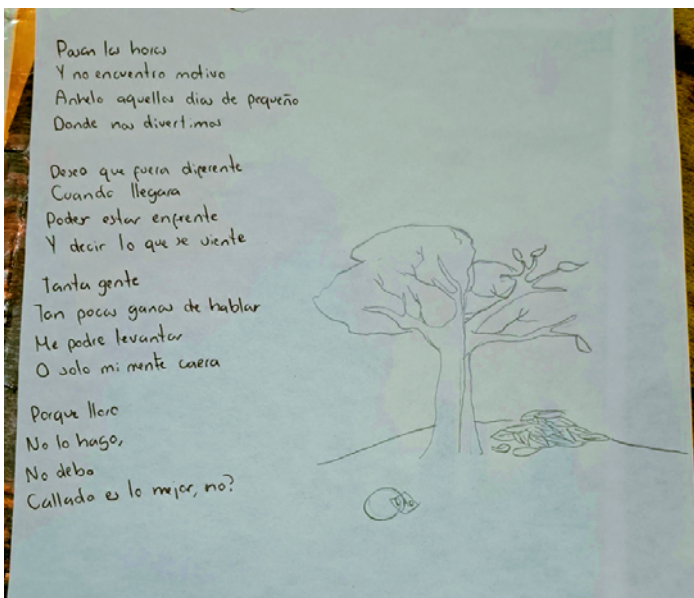 Pasan las horas
Y no encuentro motivo
Anhelo aquellos dias de pequeño
Donde nos divertimos
Deseo que fuera diferente
Cuando llegara
Poder estar enfrente
Y decir lo que se siente
Tanta gente
Tan pocas ganas de hablar
Me podre levantar
O solo mi mente caera
Porque lloro
No lo hago,
No debo
Callado es lo mejor, no?